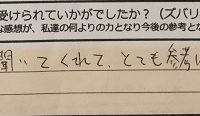 受けられていかがでしたか？（ズバリ
な感想が、私達の何よりの力となり今後の参考と
聞いてくれて、とても参考に